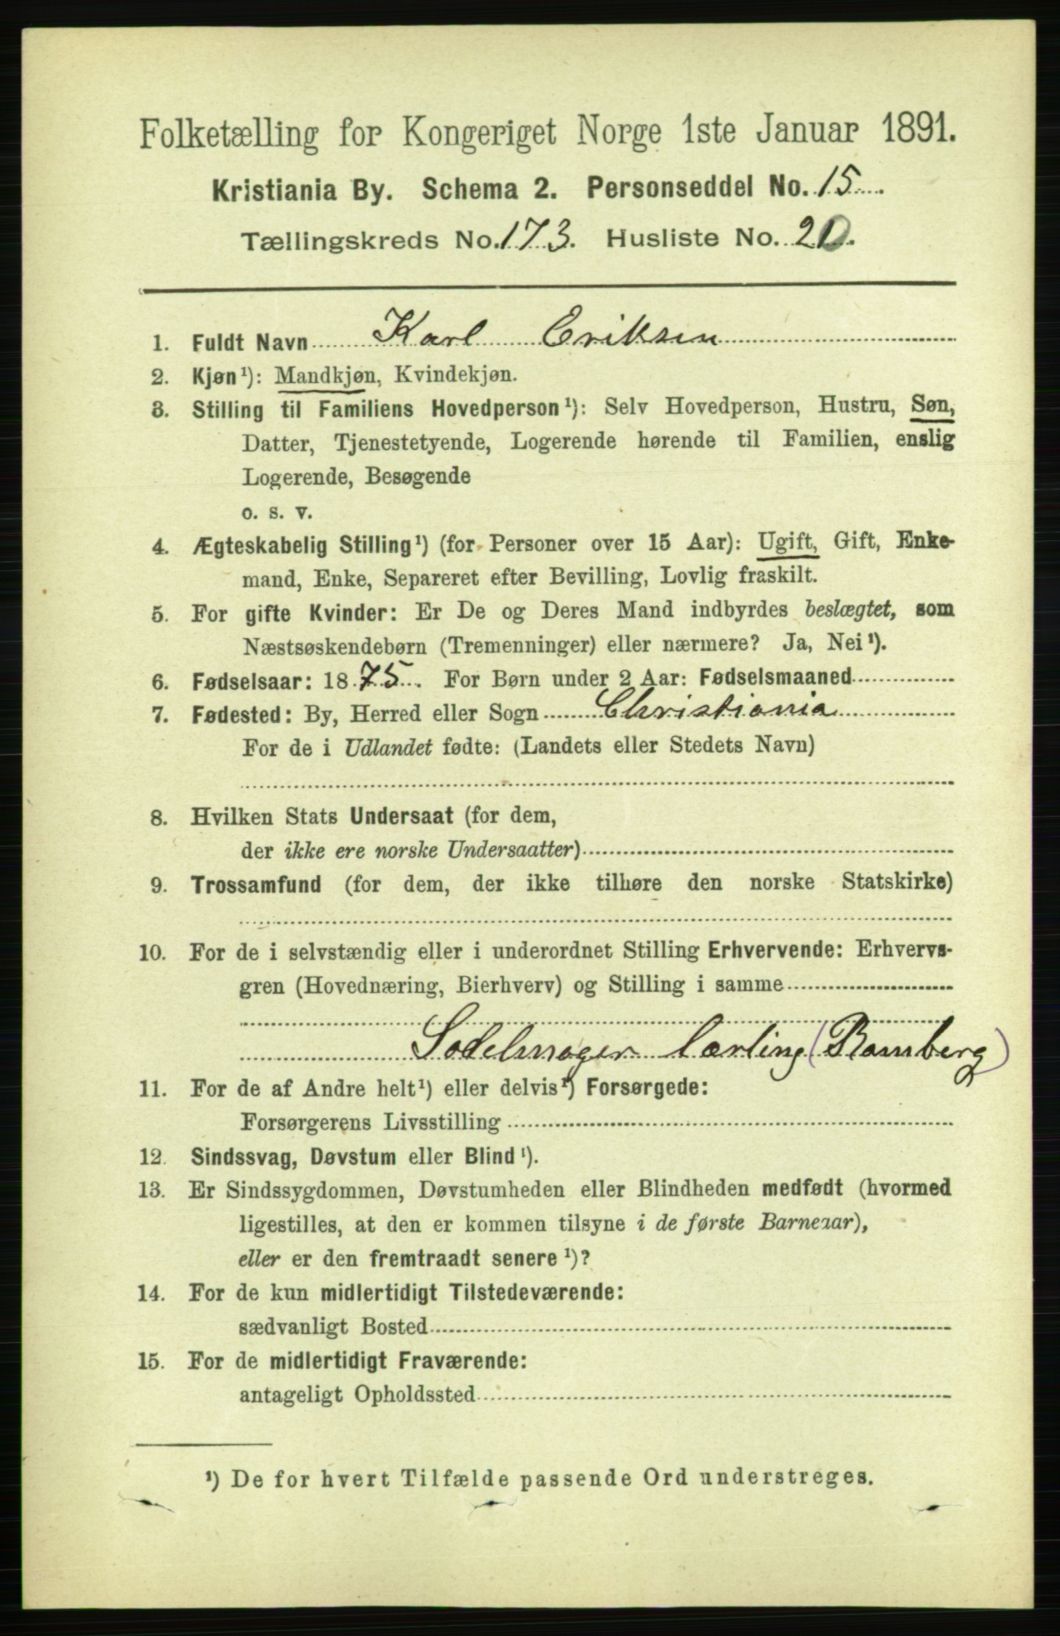 Folketælling for Kongeriget Norge 1ste Januar 1891.
Kristiania By. Schema 2. Personseddel No. 15.
Tællingskreds No. 173. Husliste No. 20.
1. Fuldt Navn Karl Eriksen
2. Kjøn¹): Mandkjøn, Kvindekjøn.
3. Stilling til Familiens Hovedperson¹): Selv Hovedperson, Hustru, Søn,
Datter, Tjenestetyende, Logerende hørende til Familien, enslig
Logerende, Besøgende
o. s. v.
4. Ægteskabelig Stilling¹) (for Personer over 15 Aar): Ugift, Gift, Enke-
mand, Enke, Separeret efter Bevilling, Lovlig fraskilt.
5. For gifte Kvinder: Er De og Deres Mand indbyrdes beslægtet, som
Næstsøskendebørn (Tremenninger) eller nærmere? Ja, Nei¹).
6. Fødselsaar: 1875. For Børn under 2 Aar: Fødselsmaaned
7. Fødested: By, Herred eller Sogn Christiania
For de i Udlandet fødte: (Landets eller Stedets Navn)
8. Hvilken Stats Undersaat (for dem,
der ikke ere norske Undersaatter)
9. Trossamfund (for dem, der ikke tilhøre den norske Statskirke)
10. For de i selvstændig eller i underordnet Stilling Erhvervende: Erhvervs-
gren (Hovednæring, Bierhverv) og Stilling i samme
Sadelmager Lærling (Bamberg)
11. For de af Andre helt¹) eller delvis¹) Forsørgede:
Forsørgerens Livsstilling
12. Sindssvag, Døvstum eller Blind¹).
13. Er Sindssygdommen, Døvstumheden eller Blindheden medfødt (hvormed
ligestilles, at den er kommen tilsyne i de første Barneaar),
eller er den fremtraadt senere¹)?
14. For de kun midlertidigt Tilstedeværende:
sædvanligt Bosted
15. For de midlertidigt Fraværende:
antageligt Opholdssted
¹) De for hvert Tilfælde passende Ord understreges.